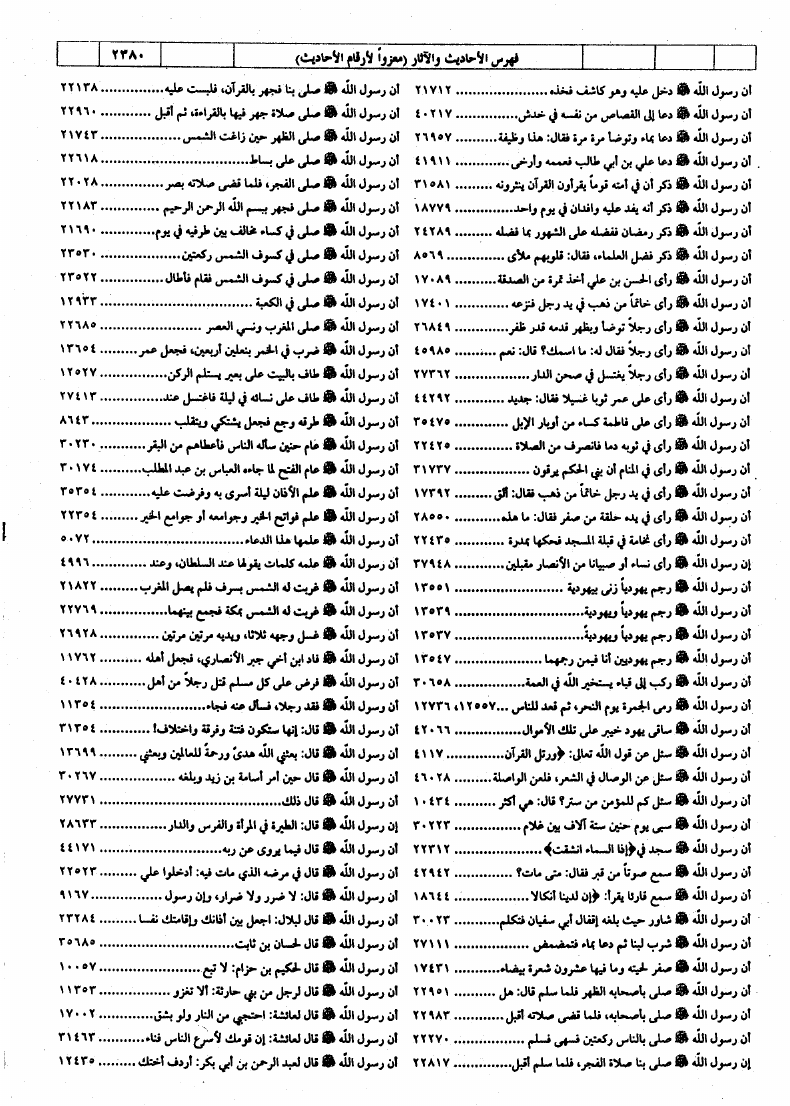 فهرس الأحاديث والآثار (معزواً لأرقام الأحاديث)
٢٣٨٠
أن رسول الله ﷺ دخل عليه وهو كاشف فخذه ........ ٢١٧١٢
أن رسول الله ﷺ دعا إلى القصاص من نفسه في خدش ........ ٤٠٢١٧
أن رسول الله ﷺ دعا بماء وتوضأ مرة مرة فقال: هذا وظيفة ........ ٢٦٩٥٧
أن رسول الله ﷺ دعا علي بن أبي طالب فعممه وأرخى ........ ٤١٩١١
أن رسول الله ﷺ ذكر أن في أمته قوماً يقرأون القرآن ينثرونه ........ ٣١٥٨١
أن رسول الله ﷺ ذكر أنه يفد عليه وافدان في يوم واحد ........ ١٨٧٧٩
أن رسول الله ﷺ ذكر رمضان ففضله على الشهور بما فضله ........ ٢٤٢٨٩
أن رسول الله ﷺ ذكر فضل العلماء، فقال: قلوبهم ملأى ........ ٨٥٦٩
أن رسول الله ﷺ رأى الحسن بن علي أخذ تمرة من الصدقة ........ ١٧٠٨٩
أن رسول الله ﷺ رأى خاتماً من ذهب في يد رجل فنزعه ........ ١٧٤٠١
أن رسول الله ﷺ رأى رجلاً توضأ وبظهر قدمه قدر ظفر ........ ٢٦٨٤٩
أن رسول الله ﷺ رأى رجلاً فقال له: ما اسمك؟ قال: نعم ........ ٤٥٩٨٥
أن رسول الله ﷺ رأى رجلاً يغتسل في صحن الدار ........ ٢٧٣٦٢
أن رسول الله ﷺ رأى على عمر ثوبا غسيلا فقال: جديد ........ ٤٤٢٩٢
أن رسول الله ﷺ رأى على فاطمة كساء من أوبار الإبل ........ ٣٥٤٧٥
أن رسول الله ﷺ رأى في ثوبه دما فانصرف من الصلاة ........ ٢٢٤٢٥
أن رسول الله ﷺ رأى في المنام أن بني الحكم يرقون ........ ٣١٧٣٧
أن رسول الله ﷺ رأى في يد رجل خاتماً من ذهب فقال: ألق ........ ١٧٣٩٢
أن رسول الله ﷺ رأى في يده حلقة من صفر فقال: ما هذه ........ ٢٨٥٥٠
أن رسول الله ﷺ رأى نخامة في قبلة المسجد فحكها بمدرة ........ ٢٢٤٣٥
إن رسول الله ﷺ رأى نساء أو صبيانا من الأنصار مقبلين ........ ٣٧٩٤٨
أن رسول الله ﷺ رجم يهودياً زنى بيهودية ........ ١٣٥٥١
أن رسول الله ﷺ رجم يهودياً ويهودية ........ ١٣٥٣٩
أن رسول الله ﷺ رجم يهودياً ويهوديةً ........ ١٣٥٣٧
أن رسول الله ﷺ رجم يهوديين أنا فيمن رجمهما ........ ١٣٥٤٧
أن رسول الله ﷺ ركب إلى قباء يستخير الله في العمة ........ ٣٠٦٥٨
أن رسول الله ﷺ رمى الجمرة يوم النحر، ثم قعد للناس ... ١٢٥٥٧، ١٢٧٣٦
أن رسول الله ﷺ ساقى يهود خيبر على تلك الأموال ........ ٤٢٠٦٦
أن رسول الله ﷺ سئل عن قول الله تعالى: ﴿ورتل القرآن ........ ٤١١٧
أن رسول الله ﷺ سئل عن الوصال في الشعر، فلعن الواصلة ........ ٤٦٠٢٨
أن رسول الله ﷺ سئل كم للمؤمن من ستر؟ قال: هي أكثر ........ ١٠٤٣٤
أن رسول الله ﷺ سبى يوم حنين ستة آلاف بين غلام ........ ٣٠٢٢٣
أن رسول الله ﷺ سجد في ﴿إذا السماء انشقت﴾ ........ ٢٢٣١٢
أن رسول الله ﷺ سمع صوتاً من قبر فقال: متى مات؟ ........ ٤٢٩٤٢
أن رسول الله ﷺ سمع قارئا يقرأ: ﴿إن لدينا أنكالا ........ ١٨٦٤٤
أن رسول الله ﷺ شاور حيث بلغه إقفال أبي سفيان فتكلم ........ ٣٠٠٢٣
أن رسول الله ﷺ شرب لبنا ثم دعا بماء فتمضمض ........ ٢٧١١١
أن رسول الله ﷺ صفر لحيته وما فيها عشرون شعرة بيضاء ........ ١٧٤٣١
أن رسول الله ﷺ صلى بأصحابه الظهر فلما سلم قال: هل ........ ٢٢٩٥١
أن رسول الله ﷺ صلى بأصحابه، فلما قضى صلاته أقبل ........ ٢٢٩٨٣
أن رسول الله ﷺ صلى بالناس ركعتين فسهى فسلم ........ ٢٢٢٧٠
إن رسول الله ﷺ صلى بنا صلاة الفجر، فلما سلم أقبل ........ ٢٢٨١٧
أن رسول الله ﷺ صلى بنا فجهر بالقرآن، فلبست عليه ........ ٢٢١٣٨
أن رسول الله ﷺ صلى صلاة جهر فيها بالقراءة، ثم أقبل ........ ٢٢٩٦٠
أن رسول الله ﷺ صلى الظهر حين زاغت الشمس ........ ٢١٧٤٣
أن رسول الله ﷺ صلى على بساط ........ ٢٢٦١٨
أن رسول الله ﷺ صلى الفجر، فلما قضى صلاته بصر ........ ٢٢٠٢٨
أن رسول الله ﷺ صلى فجهر ببسم الله الرحمن الرحيم ........ ٢٢١٨٣
أن رسول الله ﷺ صلى في كساء مخالف بين طرفيه في يوم ........ ٢١٦٩٠
أن رسول الله ﷺ صلى في كسوف الشمس ركعتين ........ ٢٣٥٣٠
أن رسول الله ﷺ صلى في كسوف الشمس فقام فأطال ........ ٢٣٥٢٢
أن رسول الله ﷺ صلى في الكعبة ........ ١٢٩٣٣
أن رسول الله ﷺ صلى المغرب ونسي العصر ........ ٢٢٦٨٥
أن رسول الله ﷺ ضرب في الخمر بنعلين أربعين، فجعل عمر ........ ١٣٦٥٤
أن رسول الله ﷺ طاف بالبيت على بعير يستلم الركن ........ ١٢٥٢٧
أن رسول الله ﷺ طاف على نسائه في ليلة فاغتسل عند ........ ٢٧٤١٣
أن رسول الله ﷺ طرقه وجع فجعل يشتكي ويتقلب ........ ٨٦٤٣
أن رسول الله ﷺ عام حنين سأله الناس فأعطاهم من البقر ........ ٣٠٢٣٠
أن رسول الله ﷺ عام الفتح لما جاءه العباس بن عبد المطلب ........ ٣٠١٧٤
أن رسول الله ﷺ علم الأذان ليلة أسرى به وفرضت عليه ........ ٣٥٣٥٤
أن رسول الله ﷺ علم فواتح الخير وجوامعه أو جوامع الخير ........ ٢٢٣٥٤
أن رسول الله ﷺ علمها هذا الدعاء ........ ٥٠٧٢
أن رسول الله ﷺ علمه كلمات يقولها عند السلطان، وعند ........ ٤٩٩٦
أن رسول الله ﷺ غربت له الشمس بسرف فلم يصل المغرب ........ ٢١٨٢٢
أن رسول الله ﷺ غربت له الشمس بمكة فجمع بينهما ........ ٢٢٧٦٩
أن رسول الله ﷺ غسل وجهه ثلاثا، ويديه مرتين مرتين ........ ٢٦٩٢٨
أن رسول الله ﷺ فاد ابن أخي جبر الأنصاري، فجعل أهله ........ ١١٧٦٢
أن رسول الله ﷺ فرض على كل مسلم قتل رجلاً من أهل ........ ٤٠٤٢٨
أن رسول الله ﷺ فقد رجلا، فسأل عنه فجاء ........ ١١٣٥٤
أن رسول الله ﷺ قال: إنها ستكون فتنة وفرقة واختلاف! ........ ٣١٣٥٤
أن رسول الله ﷺ قال: بعثني الله هدىً ورحمةً للعالمين وبعثني ........ ١٣٦٩٩
أن رسول الله ﷺ قال حين أمر أسامة بن زيد وبلغه ........ ٣٠٢٦٧
أن رسول الله ﷺ قال ذلك ........ ٢٧٧٣١
إن رسول الله ﷺ قال: الطيرة في المرأة والفرس والدار ........ ٢٨٦٣٣
أن رسول الله ﷺ قال فيما يروى عن ربه ........ ٤٤١٧١
أن رسول الله ﷺ قال في مرضه الذي مات فيه: أدخلوا علي ........ ٢٢٥٢٣
أن رسول الله ﷺ قال: لا ضرر ولا ضرار، وإن رسول ........ ٩١٦٧
أن رسول الله ﷺ قال لبلال: اجعل بين أذانك وإقامتك نفسا ........ ٢٣٢٨٤
أن رسول الله ﷺ قال لحسان بن ثابت ........ ٣٥٦٨٥
أن رسول الله ﷺ قال لحكيم بن حزام: لا تبع ........ ١٠٠٥٧
أن رسول الله ﷺ قال لرجل من بني حارثة: ألا تغزو ........ ١١٣٥٣
أن رسول الله ﷺ قال لعائشة: احتجبي من النار ولو بشق ........ ١٧٠٠٢
أن رسول الله ﷺ قال لعائشة: إن قومك لأسرع الناس فناء ........ ٣١٤٦٣
أن رسول الله ﷺ قال لعبد الرحمن بن أبي بكر: أردف أختك ........ ١٢٤٣٥